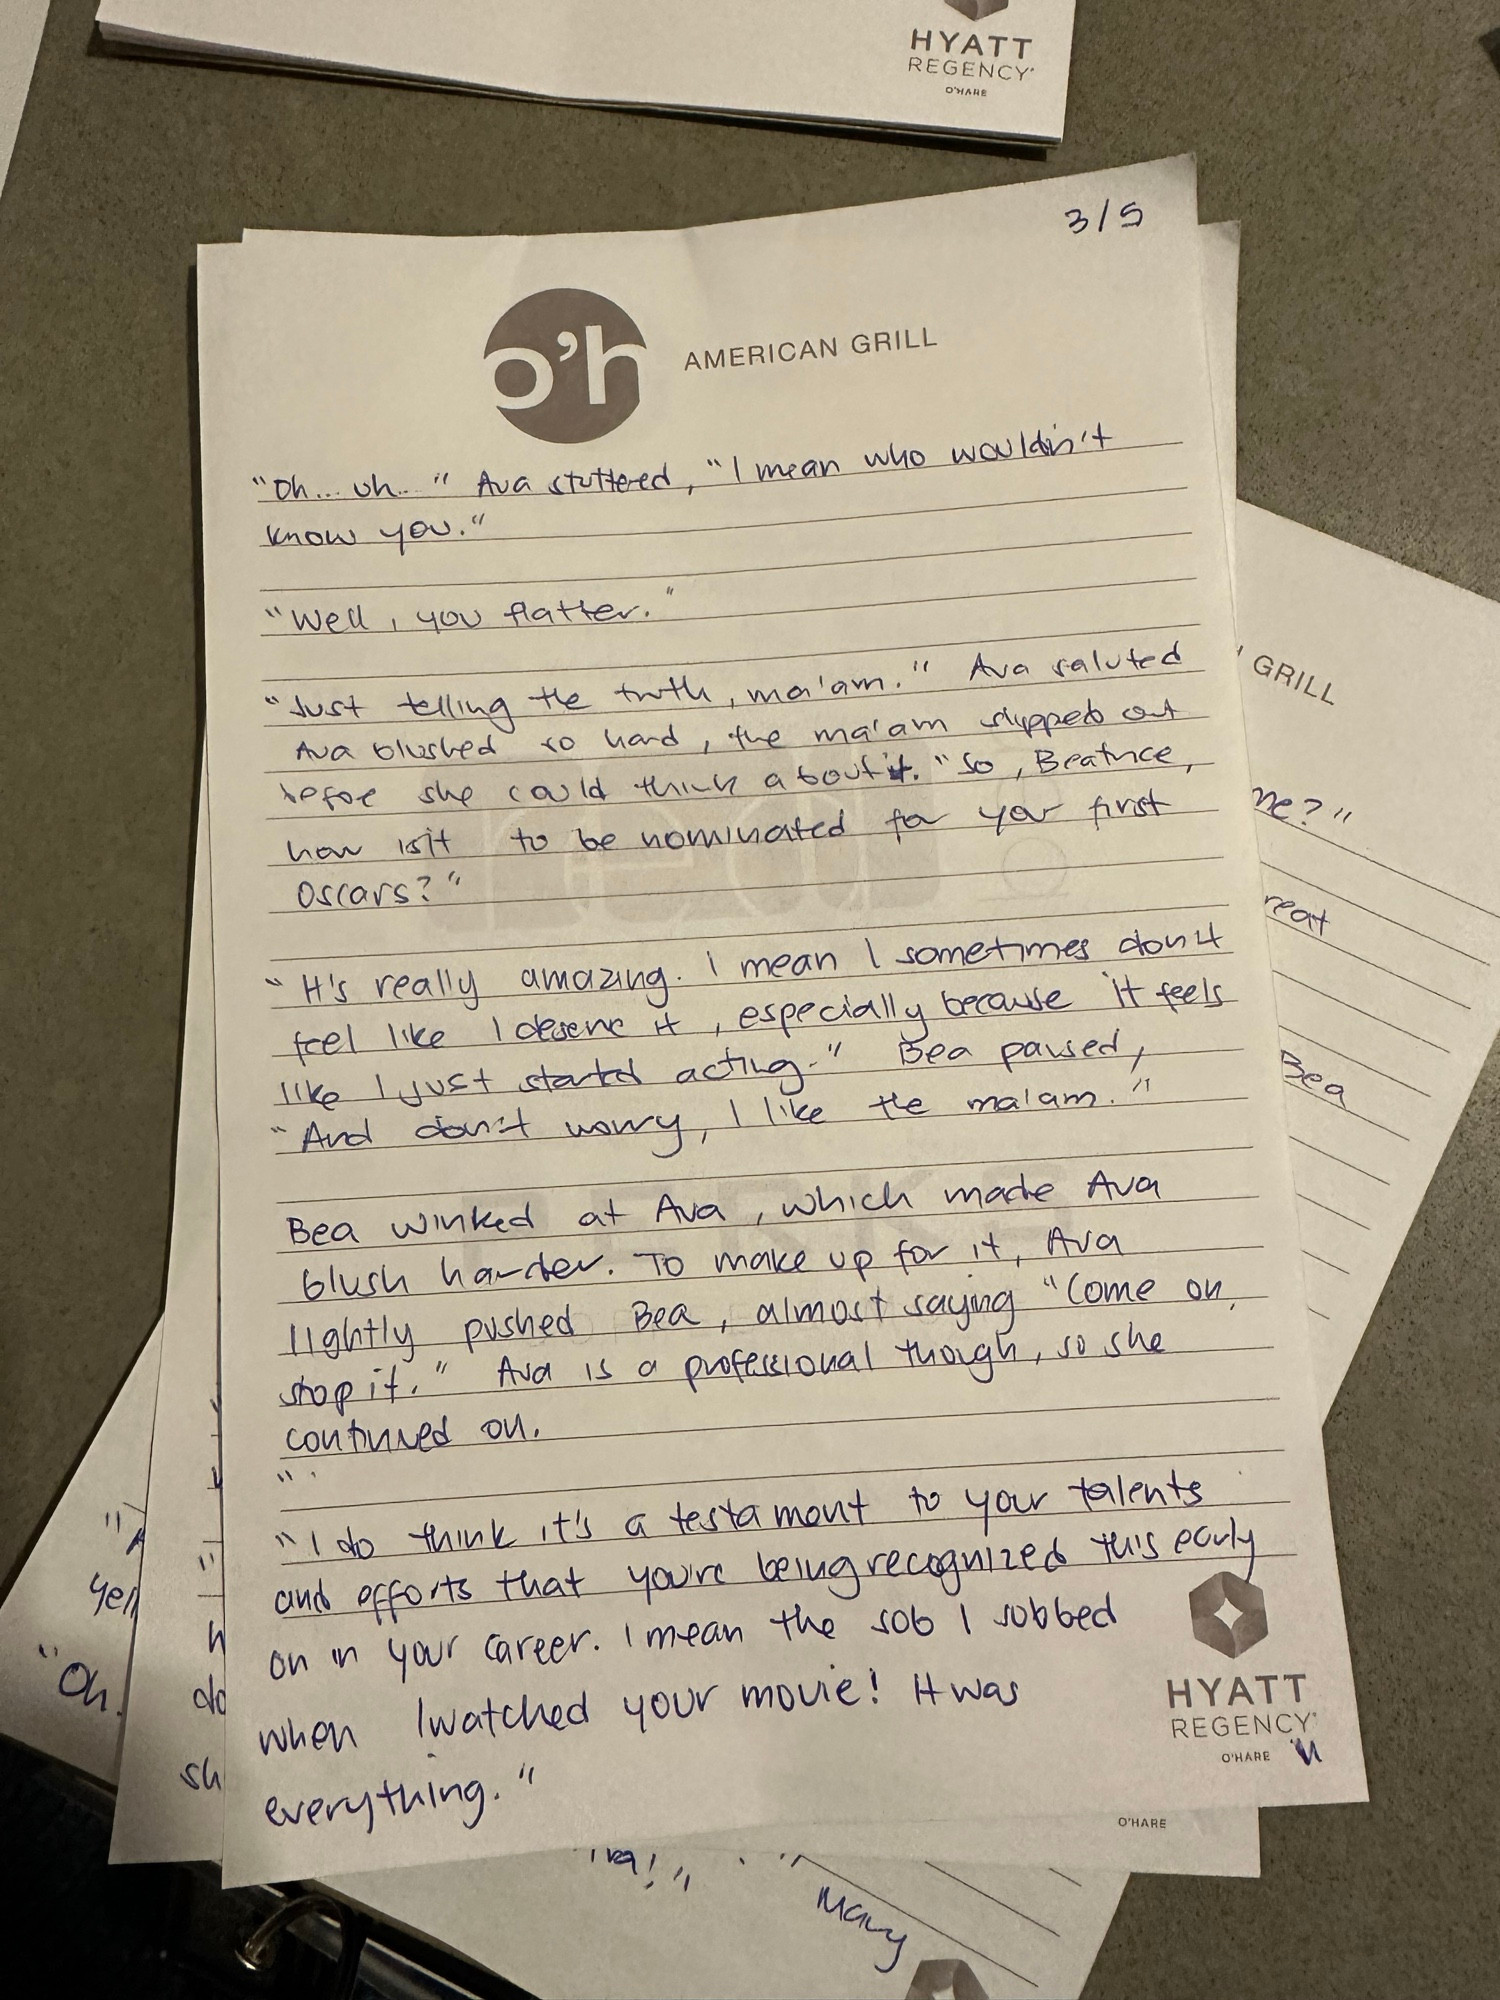 HYATT
REGENCY®
O'HARE
3/5
o'h AMERICAN GRILL
"Oh... uh.." Ava stuttered, "I mean who wouldn't
know you."
"Well, you flatter."
"Just telling the truth, ma'am." Ava saluted
Ava blushed so hard, the ma'am slipped out
before she could think about it. "So, Beatrice,
how is it to be nominated for your first
Oscars?"
"It's really amazing. I mean I sometimes don't
feel like I deserve it, especially because it feels
like I just started acting." Bea paused,
"And don't worry, I like the ma'am."
Bea winked at Ava, which made Ava
blush harder. To make up for it, Ava
lightly pushed Bea, almost saying "Come on,
stop it." Ava is a professional though, so she
continued on.
"
"I do think it's a testament to your talents
and efforts that you're being recognized this early
on in your career. I mean the sob I sobbed
when I watched your movie! It was
everything."
HYATT
REGENCY®
O'HARE
GRILL
me?"
reat
Bea
yell
"Oh.
do
sh
O'HARE
Mary